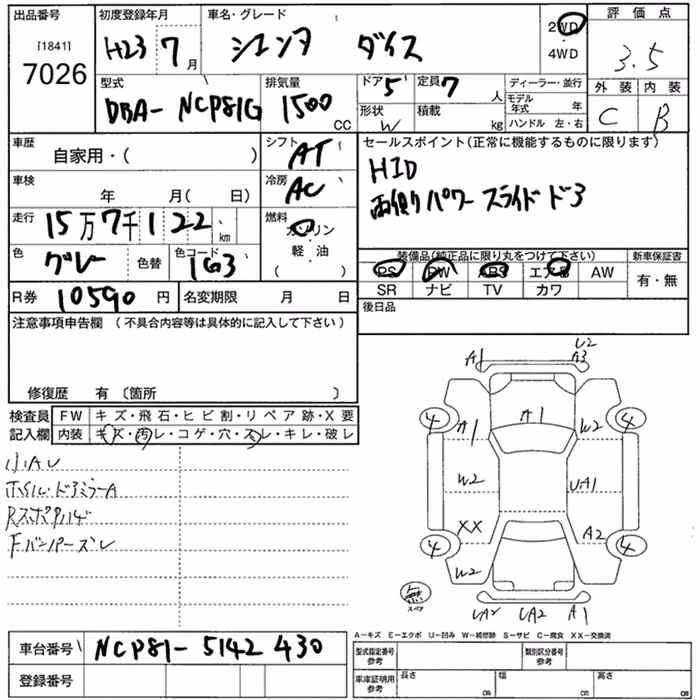 出品番号 初度登録年月 車名・グレード 評価点
[1841] 7026 H23 7月 シエンタ ダイス 2WD 4WD 3.5
型式 排気量 ドア 5 定員 7人 ディーラー・並行 外装 内装
DBA- NCP81G 1500 CC 形状 W 積載 kg モデル年式 年 ハンドル 左・右 C B
車歴 自家用・( ) シフト AT セールスポイント(正常に機能するものに限ります)
車検 年 月( 日) 冷房 AC HID
走行 15万7千122km 燃料 ガソリン 軽・油 ( ) 両側パワースライドドア
色 グレー 色替 色コード 1G3 装備品(純正品に限り丸をつけて下さい) 新車保証書
PS PW ABS エアB AW 有・無
R券 10590円 名変期限 月 日 SR ナビ TV カワ
注意事項申告欄 (不具合内容等は具体的に記入して下さい) 後日品
修復歴 有 〔箇所 〕
検査員 FW キズ・飛石・ヒビ割・リペア跡・X要
記入欄 内装 キズ・汚レ・コゲ・穴・スレ・キレ・破レ
小AU
ホイル・ドアミラーA
Fバンパーズレ
A1 U2 A3
4 A1 A1 W2 4
W2 UA1
4 XX A2 4
W2
無 スペア UA2 UA2 A1
A-キズ E-エクボ U-凹み W-補修跡 S-サビ C-腐食 XX-交換済
車台番号 NCP81- 5142430 型式指定番号 参考 類別区分番号 参考
登録番号 車庫証明用 参考 長さ cm 幅 cm 高さ cm